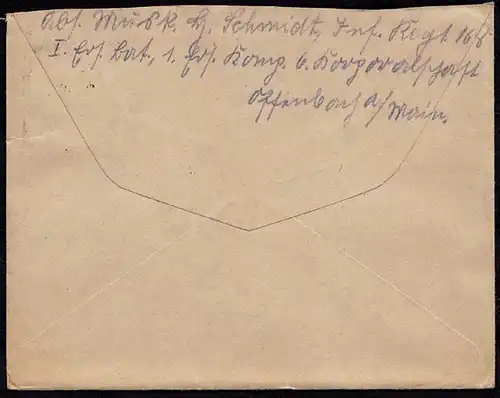 Abs. Musk. H. Schmidt, Inf. Regt. 168
I. Ers. Bat., 1. Ers. Komp. 6. Korporalschaft
Offenbach a/Main.